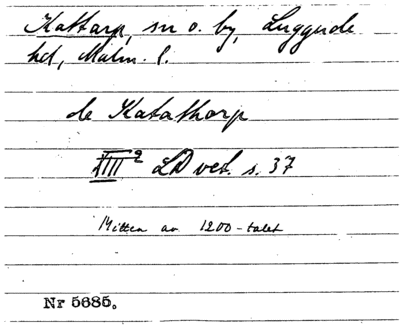 Kattarp, sn o. by, Luggude
hd, Malm. l.
de Katathorp
XIII² LD vet. s. 37
Mitten av 1200-talet
Nr 5685.